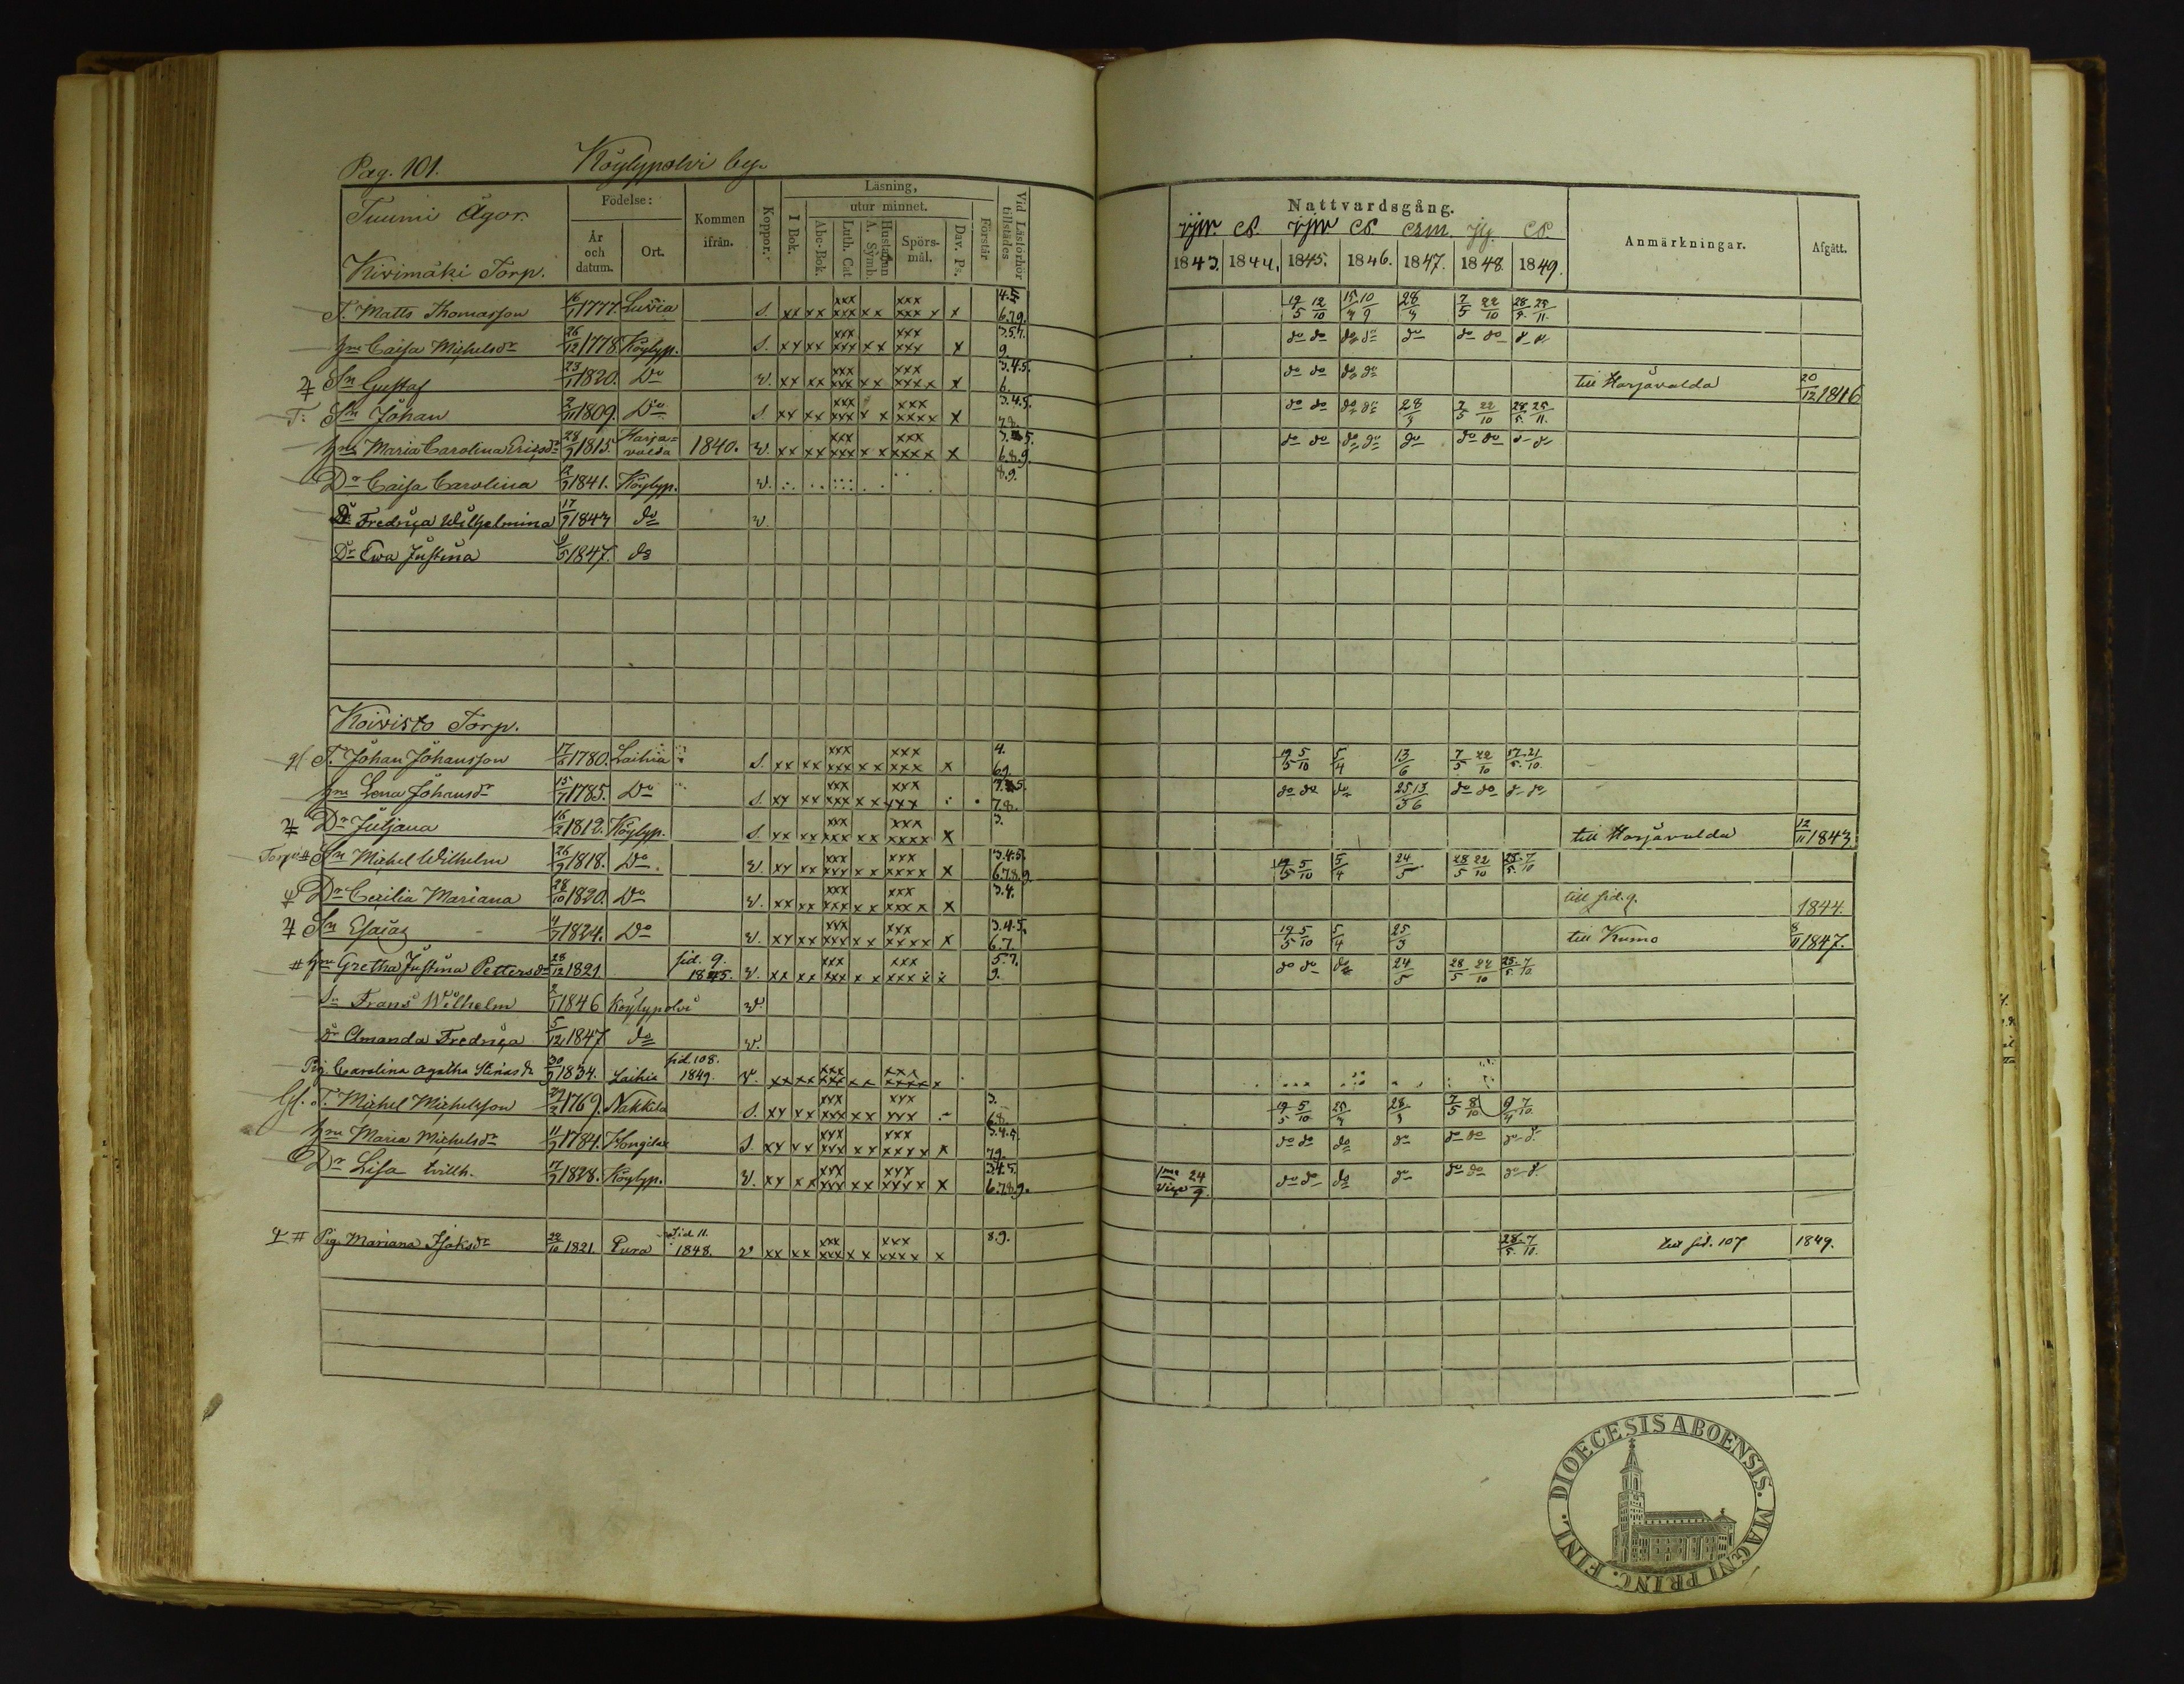 Pag. 101. Köylypolvi by.
Tuumi Ägor.
Kivimäki Torp.
Födelse:
År och datum.
Ort.
Kommen ifrån.
Koppor.
Läsning,
I Bok.
utur minnet.
Abc-Bok.
Luth. Cat
A. Symb. Hustaflan
Spörsmål.
Dav. Ps.
Förstår
Vid Läsförhör tillstädes
Nattvardsgång.
1843. 1844. 1845. 1846. 1847. 1848. 1849.
Anmärkningar.
Afgått.
T. Matts Thomasson 16/1 1777. Luvia S. xx xx xxx xxx xx xxx xxx x x 4.5 6.7.9. 19/5 12/10 28/3 7/5 22/10 28/5 25/11
hu Caisa Michelsdr 26/12 1778 Köylyp. S. xx xx xxx xxx xx xxx xxx x 3.5.7. 9. do do do do do do do
Sn Gustaf 23/1 1820. Do v. xx xx xxx xxx xx xxx xxxx x 3.4.5. 6. do do do do till Harjavalda 20/12 1846
T: Sn Johan 1809. Do S. xx xx xxx xxx x x xxx xxxx x 3.4.5. 7.8. do do do do 28/3 7/5 22/10 28/5 25/11.
hu Maria Carolina Ericsdr 28/3 1815. Harjavalda 1840. v. xx xx xxx xxx x x xxx xxxx x 6.8.9. do do do do do do do
Dr Caisa Carolina 1841. Köylyp. v. 8.9.
Dr Fredrica Wilhelmina 17/9 1843 do v.
Dr Ewa Justina 9/5 1847. do
Koivisto Torp.
T. Johan Johansson 1780. Laihia S. xx xx xxx xxx xx xxx xxx x 4. 6.9. 19/5 5/10 5/4 13/6 7/5 22/10 27/5 21/10
hu Lena Johansdr 15/7 1785. Do S. xx xx xxx xxx xx xxx xxx 7.8. do do do 25/5 13/6 do do
Dr Juljana 1812. Köylyp. S. xx xx xxx xxx xx xxx xxxx x 3. till Harjavalda 12/11 1843
Sn Michel Wilhelm 26/9 1818. Do. v. xx xx xxx xxx xx xxx xxxx x 3.4.5. 6.7.8.9 19/5 5/10 5/4 24/5 28/5 22/10 25/5 7/10
Dr Cecilia Mariana 28/10 1820. Do v. xx xx xxx xxx xx xxx xxx x x 3.4. till sid. 9. 1844.
Sn Esaias 1824. Do v. xx xx xxx xxx xx xxx xxxx x 3.4.5. 6.7. 19/5 5/10 5/4 25/3 till Kumo 8/11 1847.
hu Gretha Justina Pettersdr 28/12 1821 sid. 9. 1845. v. xx xx xxx xxx xx xxx xxx 5.7. 9. do do do 24/5 28/5 22/10 25/5 7/10
Sn Frans Wilhelm 2/1 1846 Köylypolvi v.
dr Amanda Fredrica 5/12 1847 do v.
Pig. Carolina Agatha 30/9 1834. Laihia sid. 108. 1849. v. xx xx xxx xxx xx xxx xxxx x
T. Michel Michelsson 29/2 1769. Nakkila S. xx xx xxx xxx xx xxx xxx 3. 6.8. 19/5 5/10 28/3 7/5 8/10 9/4 7/10
hu Maria Michelsdr 11/9 1784. S. xx xx xxx xxx xx xxx xxxx x 7.9. do do do do do do
Dr Lisa Willh. 17/9 1828. Köylyp. v. xx xx xxx xxx xx xxx xxxx x 3.4.5. 6.7.8.9. 24/9 do do do do do do
Pig. Mariana Isaksdr 22/10 1821. Pura Sid 11. 1848. v xx xx xxx xxx xx xxx xxxx x 8.9. 28/5 7/10. till sid. 107 1849.
DIOECESIS ABOENSIS. MAGNI PRINC. FINL.